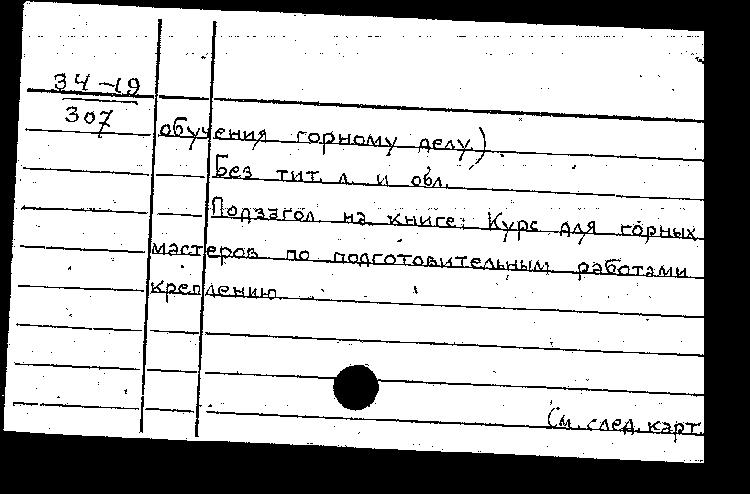 34-19
307
обучения горному делу.)
Без тит. л. и обл.
Подзагол. на книге: Курс для горных
мастеров по подготовительным работами
креплению
См. след. карт.